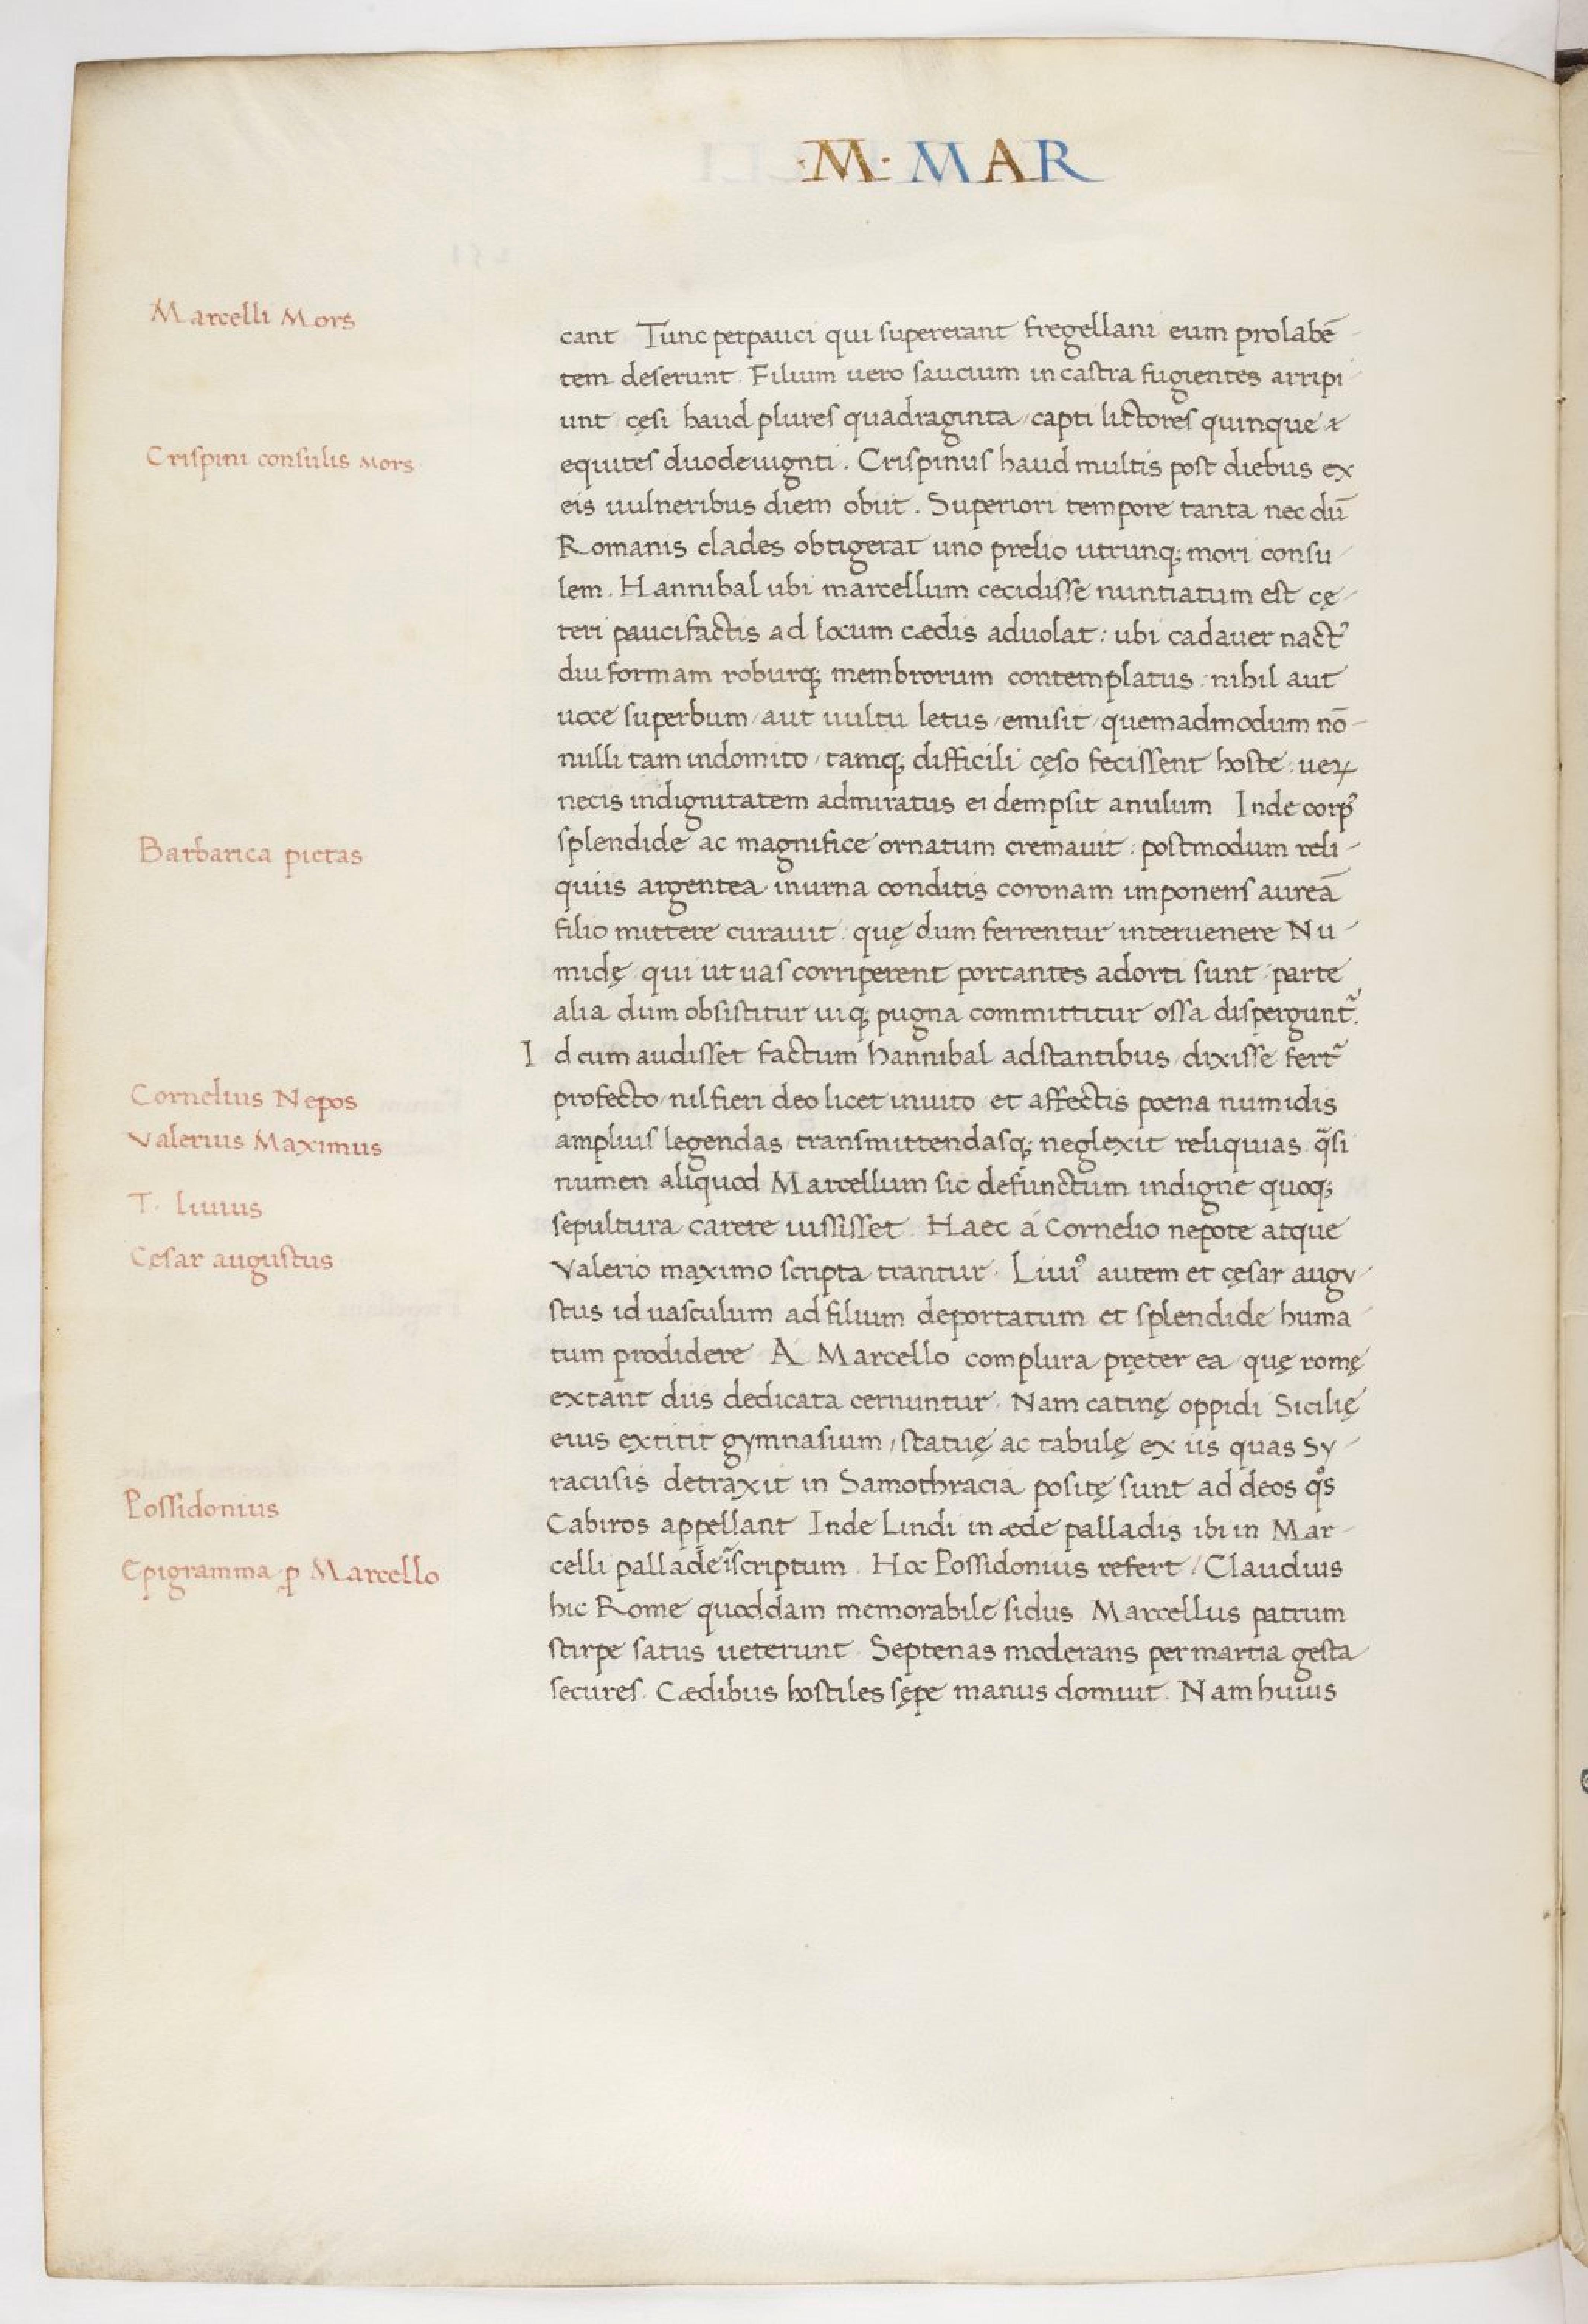 ·M· MAR
Marcelli Mors
cant Tunc perpauci qui supererant fregellani eum prolabē
tem deserunt. Filium uero saucium in castra fugientes arripi
unt cęsi haud plures quadraginta, capti lictores quinque &
Crispini consulis Mors
equites duodeuignti. Crispinus haud multis post diebus ex
eis uulneribus diem obiit. Superiori tempore tanta nec dū
Romanis clades obtigerat uno prelio utrunq; mori consu
lem. Hannibal ubi marcellum cecidisse nuntiatum est cę
teri paucifactis ad locum cædis aduolat: ubi cadauer nactꝰ
diu formam roburq; membrorum contemplatus: nihil aut
uoce superbum, aut uultu letus, emisit, quemadmodum nō
nulli tam indomito, tamq; difficili cęso fecissent hoste: ueꝝ
necis indignitatem admiratus ei dempsit anulum Inde corpꝰ
Barbarica pietas
splendide ac magnifice ornatum cremauit: postmodum reli
quiis argentea inurna conditis coronam imponens aureā
filio mittere curauit: quę dum ferrentur interuenere Nu
midę qui ut uas corriperent portantes adorti sunt: parte
alia dum obsistitur uiq; pugna committitur ossa disperguntᷣ.
Id cum audisset factum hannibal adstantibus dixisse fertᷣ
Cornelius Nepos
profecto, nil fieri deo licet inuito et affectis poena numidis
Valerius Maximus
ampluis legendas transmittendasq; neglexit reliquias. q̃si
T. Liuius
numen aliquod Marcellum sic defunctum indigne quoq;
sepultura carere iussisset. Haec á Cornelio nepote atque
Cęsar augustus
Valerio maximo scripta trantur. Liuiꝰ autem et cęsar augv
stus id uasculum ad filium deportatum et splendide huma
tum prodidere A Marcello complura pręter ea quę romę
extant diis dedicata cernuntur. Nam catinę oppidi Sicilię
eius extitit gymnasium, statuę ac tabulę ex iis quas Sy
racusis detraxit in Samothracia positę sunt ad deos qͦs
Possidonius
Cabiros appellant Inde Lindi in æde palladis ibi in Mar
Epigramma ꝓ Marcello
celli pallade īscriptum. Hoc Possidonius refert, Claudius
hic Rome quoddam memorabile sidus Marcellus patrum
stirpe satus ueterunt. Septenas moderans per martia gesta
secures. Cædibus hostiles sępe manus domuit. Nam huius